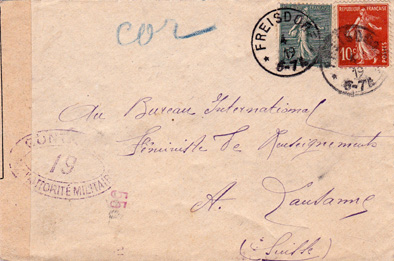 cor
FREISDORF
4
19
6-7N
RÉPUBLIQUE FRANÇAISE
10
POSTES
19
6-7N
Au Bureau International
Féministe de Renseignements
A. Lausanne
(Suisse)
19
AUTORITÉ MILITAIRE